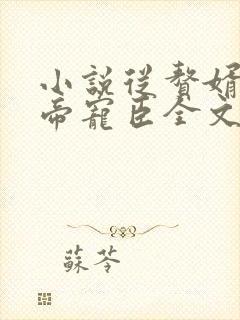 小說從贅婿
帝寵臣全文
蘇苓